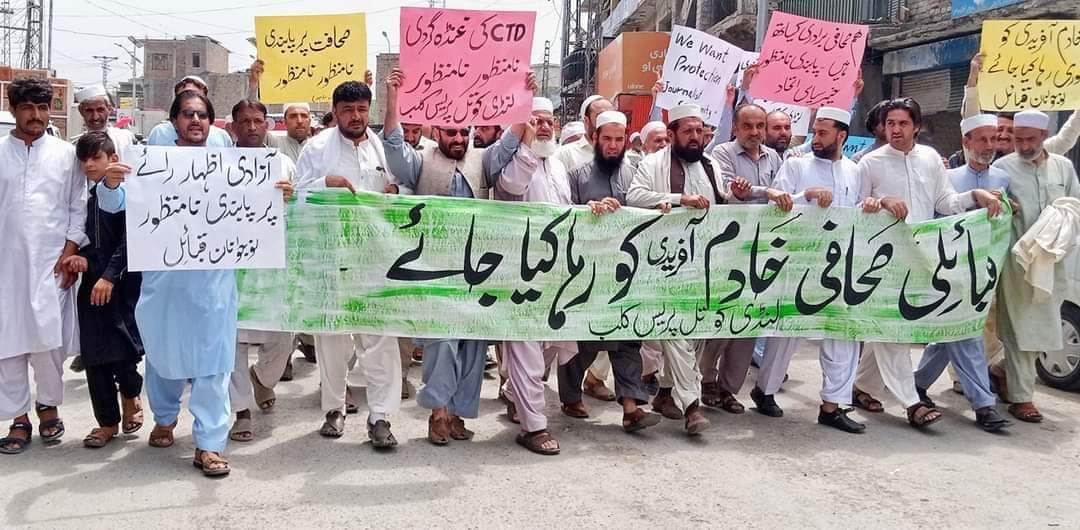 صحافت پر پابندی
نامنظور نامنظور
CTD کی غنڈہ گردی
نامنظور نامنظور
لنڈی کوتل پریس کلب
We Want
Protection
Journalist
صحافی برادری کیساتھ
ہیں۔ پابندی نامنظور
خیبر سیاسی اتحاد
خادم آفریدی کو
رہا کیا جائے
نوجوانان قبائل
آزادی اظہار رائے
پر پابندی نامنظور
نوجوانان قبائل
قبائلی صحافی خادم آفریدی کو رہا کیا جائے
لنڈی کوتل پریس کلب